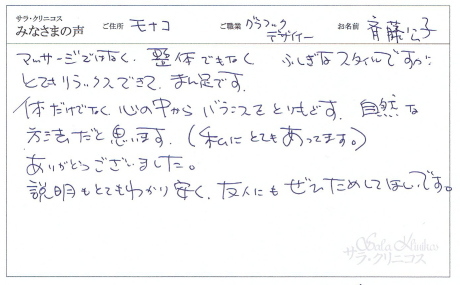 サラ・クリニコス
みなさまの声 ご住所 モナコ ご職業 グラフィックデザイナー お名前 斉藤 子
マッサージではなく、整体でもなく ふしぎなスタイルですが
とてもリラックスできて、まん足です。
体だけでなく 心の中から バランスをとりもどす、自然な
方法だと思います。(私にとてもあってます。)
ありがとうございました。
説明もとてもわかり安く、友人にも ぜひためしてほしいです。
Sala Klinikos
サラ・クリニコス